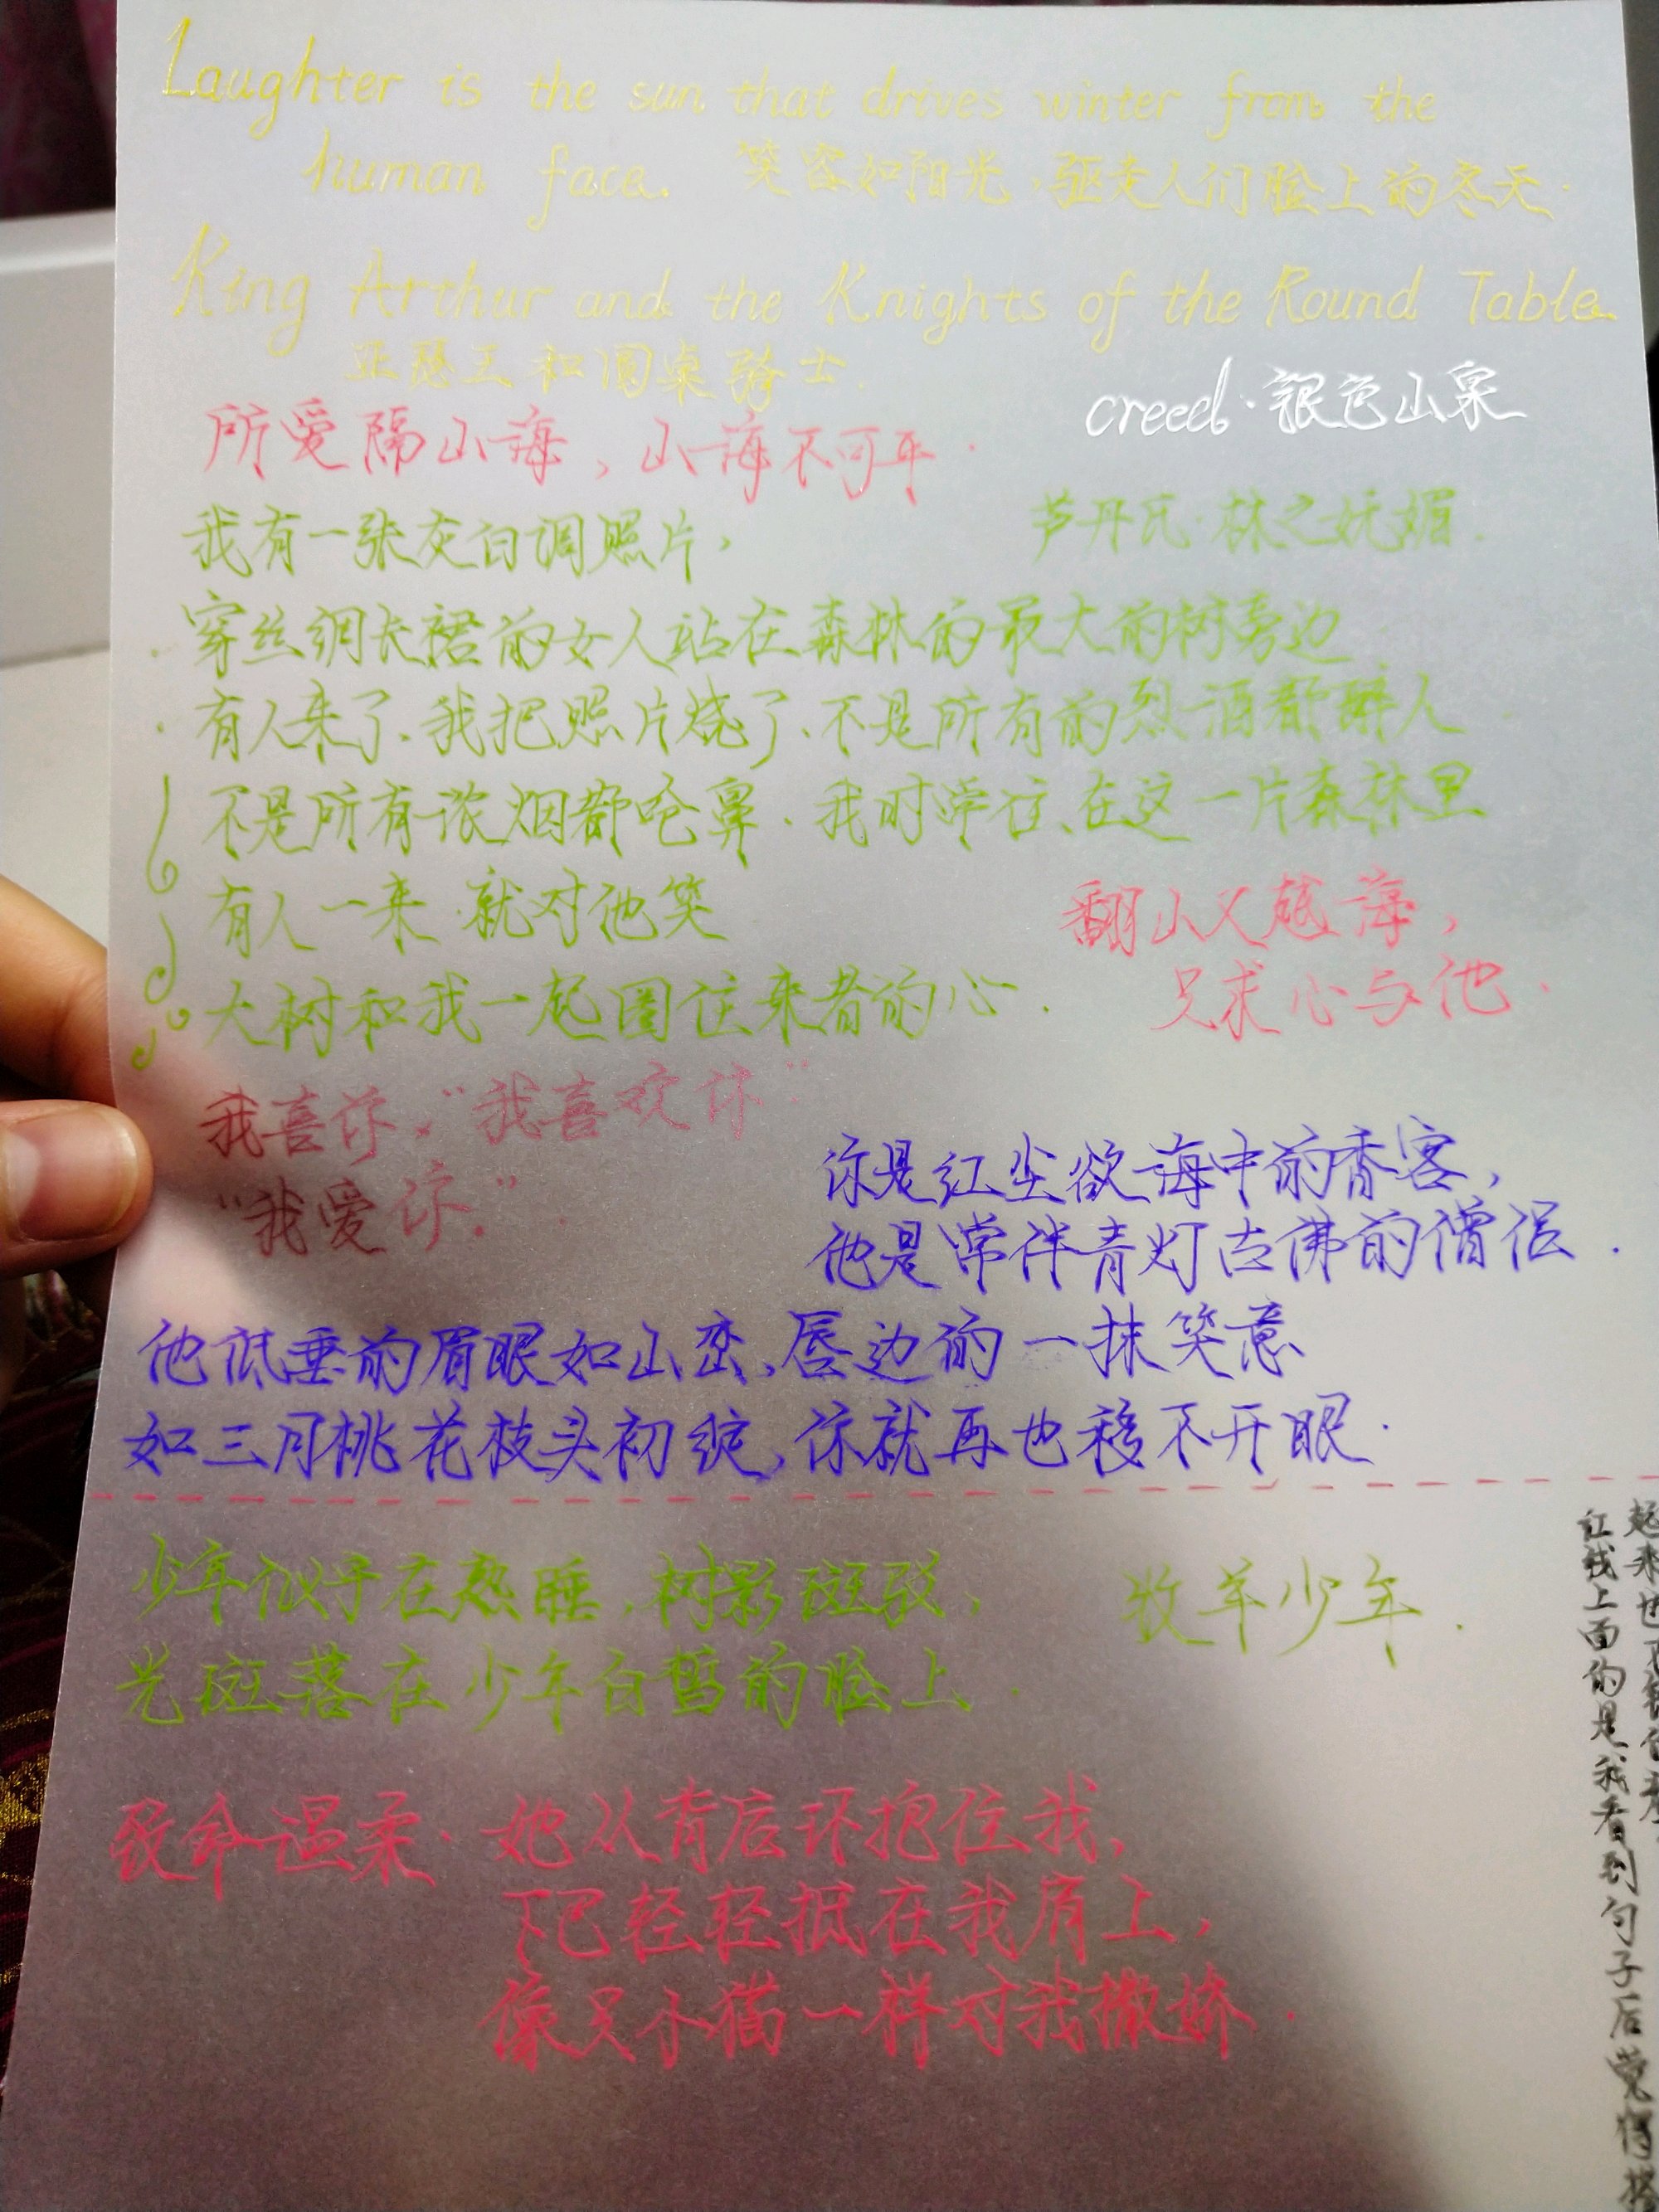 Laughter is the sun that drives winter from the
human face. 笑容如阳光,驱走人们脸上的冬天.
King Arthur and the Knights of the Round Table
亚瑟王和圆桌骑士.
creed·银色山泉
所爱隔山海,山海不可平.
我有一张灰白调照片,
芦丹氏·林之妩媚.
穿丝绸长裙的女人站在森林的最大的树旁边
有人来了、我把照片烧了、不是所有的烈酒都醉人
不是所有浓烟都呛鼻.我时常往、在这一片森林里
有人一来 就对他笑
大树和我一起圈住来者的心.
翻山又越海,
只求心与他.
我喜你,“我喜欢你”
“我爱你.”
你是红尘欲海中的香客,
他是常伴青灯古佛的僧侣.
他低垂的眉眼如山峦,唇边的一抹笑意
如三月桃花枝头初绽,你就再也移不开眼.
少年似乎在熟睡,树影斑驳,
牧羊少年.
光斑落在少年白皙的脸上.
致命温柔·她从背后环抱住我,
下巴轻轻抵在我肩上,
像只小猫一样对我撒娇.
起来也不错
红线上面的是我看到句子后觉得搭